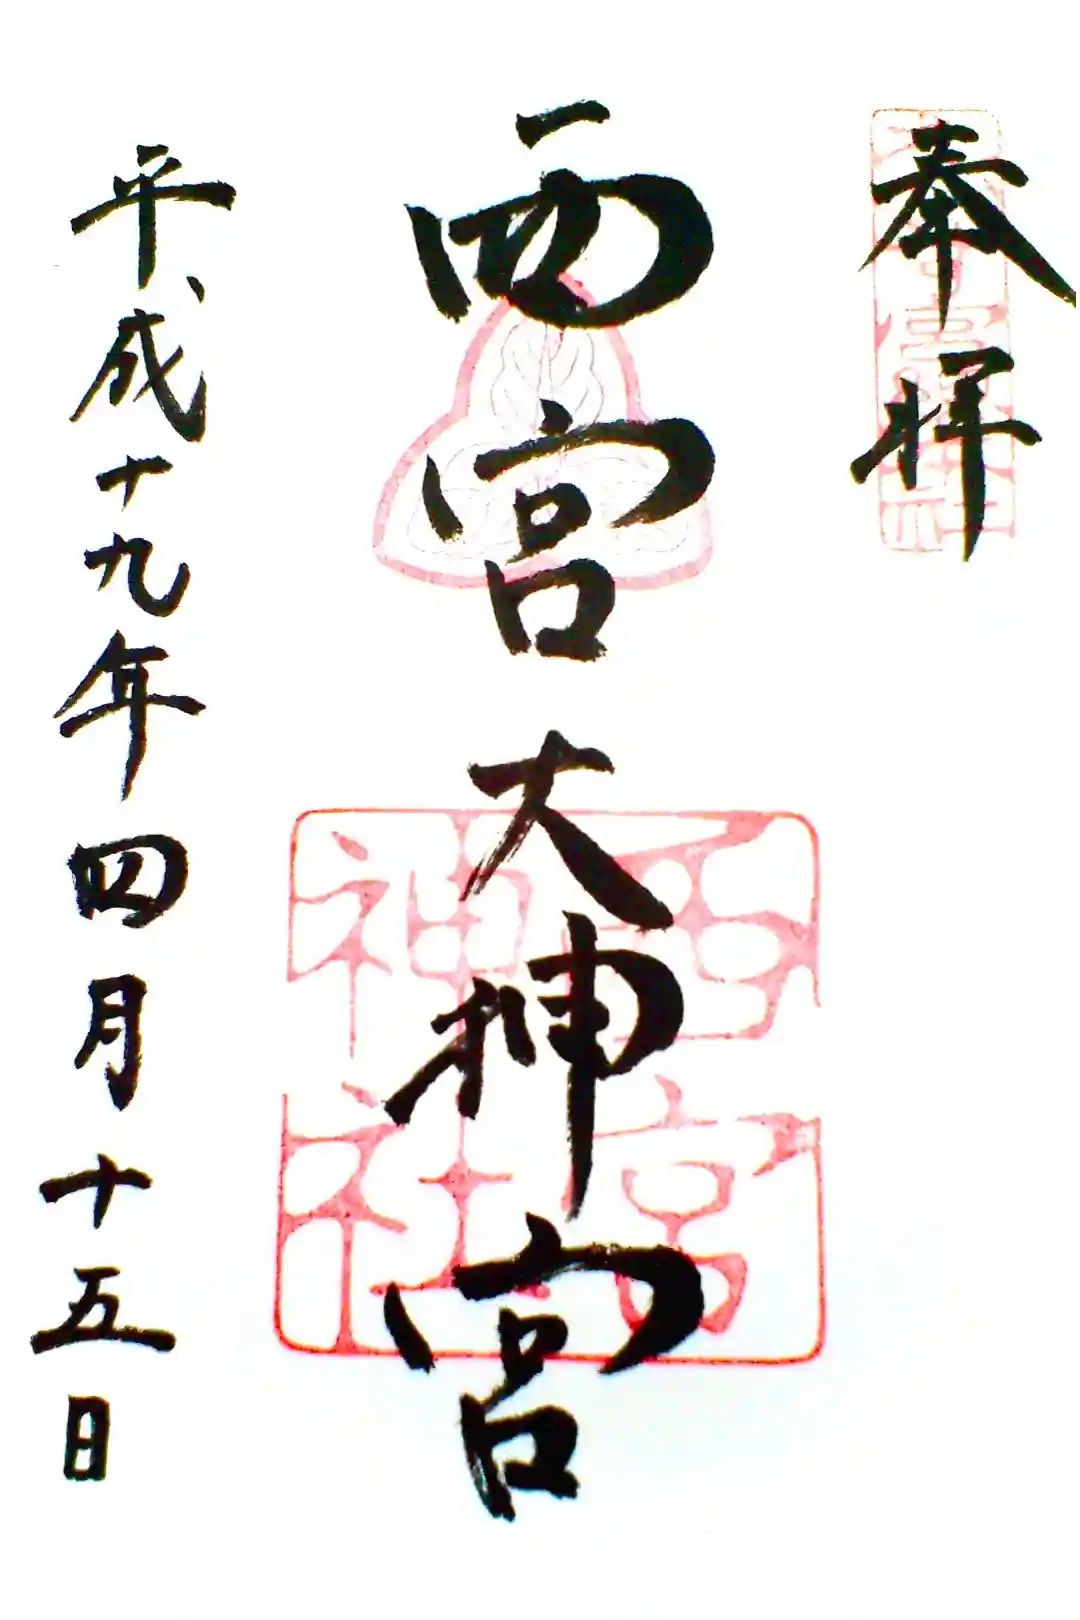 奉拝
西宮大神宮
平成十九年四月十五日
西宮神社